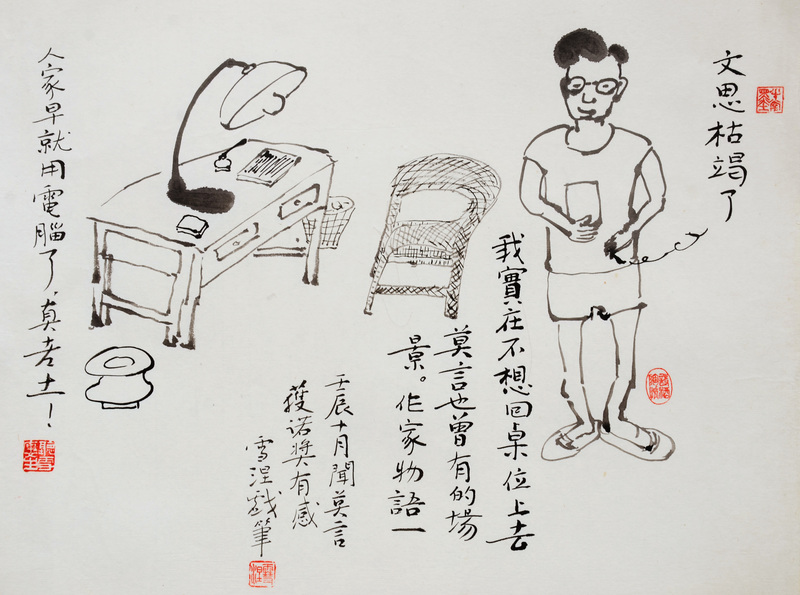 文思枯竭了
我實在不想回桌位上去
莫言也曾有的場
景。作家物語一
壬辰十月聞莫言
獲诺奖有感
雪涅戲筆
人家早就用電腦了，真老土！